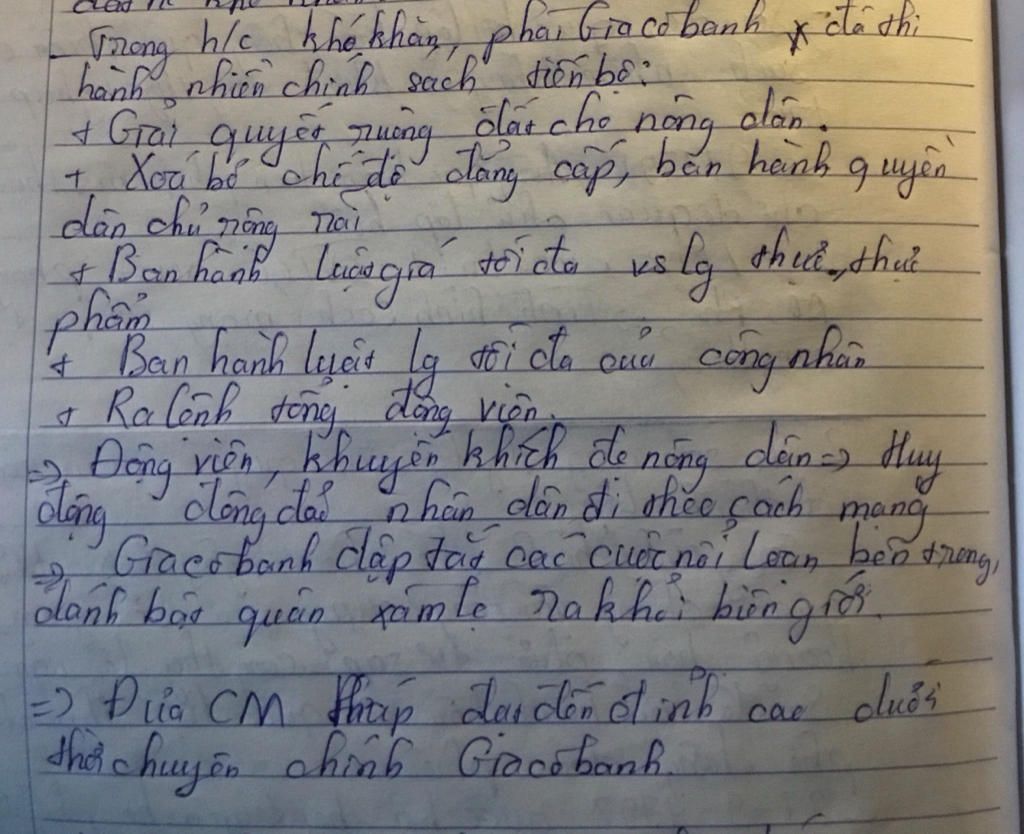 - Trong h/c khó khăn, phái Giacôbanh đã thi
hành nhiều chính sách tiến bộ:
+ Giải quyết ruộng đất cho nông dân.
+ Xoá bỏ chế độ đẳng cấp, ban hành quyền
dân chủ rộng rãi
+ Ban hành luật giá tối đa vs lg thực, thực
phẩm
+ Ban hành luật lg tối đa của công nhân
+ Ra lệnh tổng động viên.
=> Động viên, khuyến khích đc nông dân => Huy
động đông đảo nhân dân đi theo cách mạng
=> Giacôbanh dập tắt các cuộc nổi loạn bên trong,
đánh bại quân xâm lc ra khỏi biên giới.
=> Đưa CM Pháp đạt đến đỉnh cao dưới
thời chuyên chính Giacôbanh.